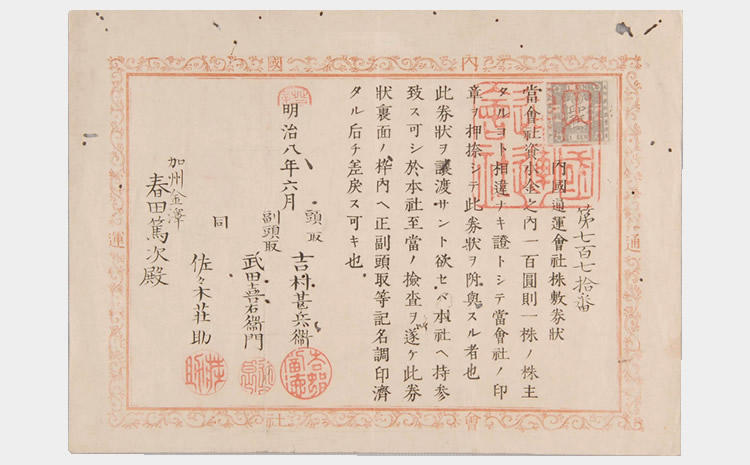 第七百七拾番
内國通運會社株敷券狀
當會社資本金之内一百圓則一株ノ株主
タルヿト相違ナキ證トシテ當會社ノ印
章ヲ押捺シテ此券狀ヲ附與スル者也
此券狀ヲ讓渡サント欲セバ本社ヘ持参
致ス可シ於本社至當ノ撿査ヲ遂ケ此券
狀裏面ノ枠内ヘ正副頭取等記名調印濟
タル后チ差戻ス可キ也
明治八年六月
頭取 吉村甚兵衞
副頭取 武田喜右衞門
同 佐々木莊助
加州金澤
春田篤次殿
内國
通運
會社